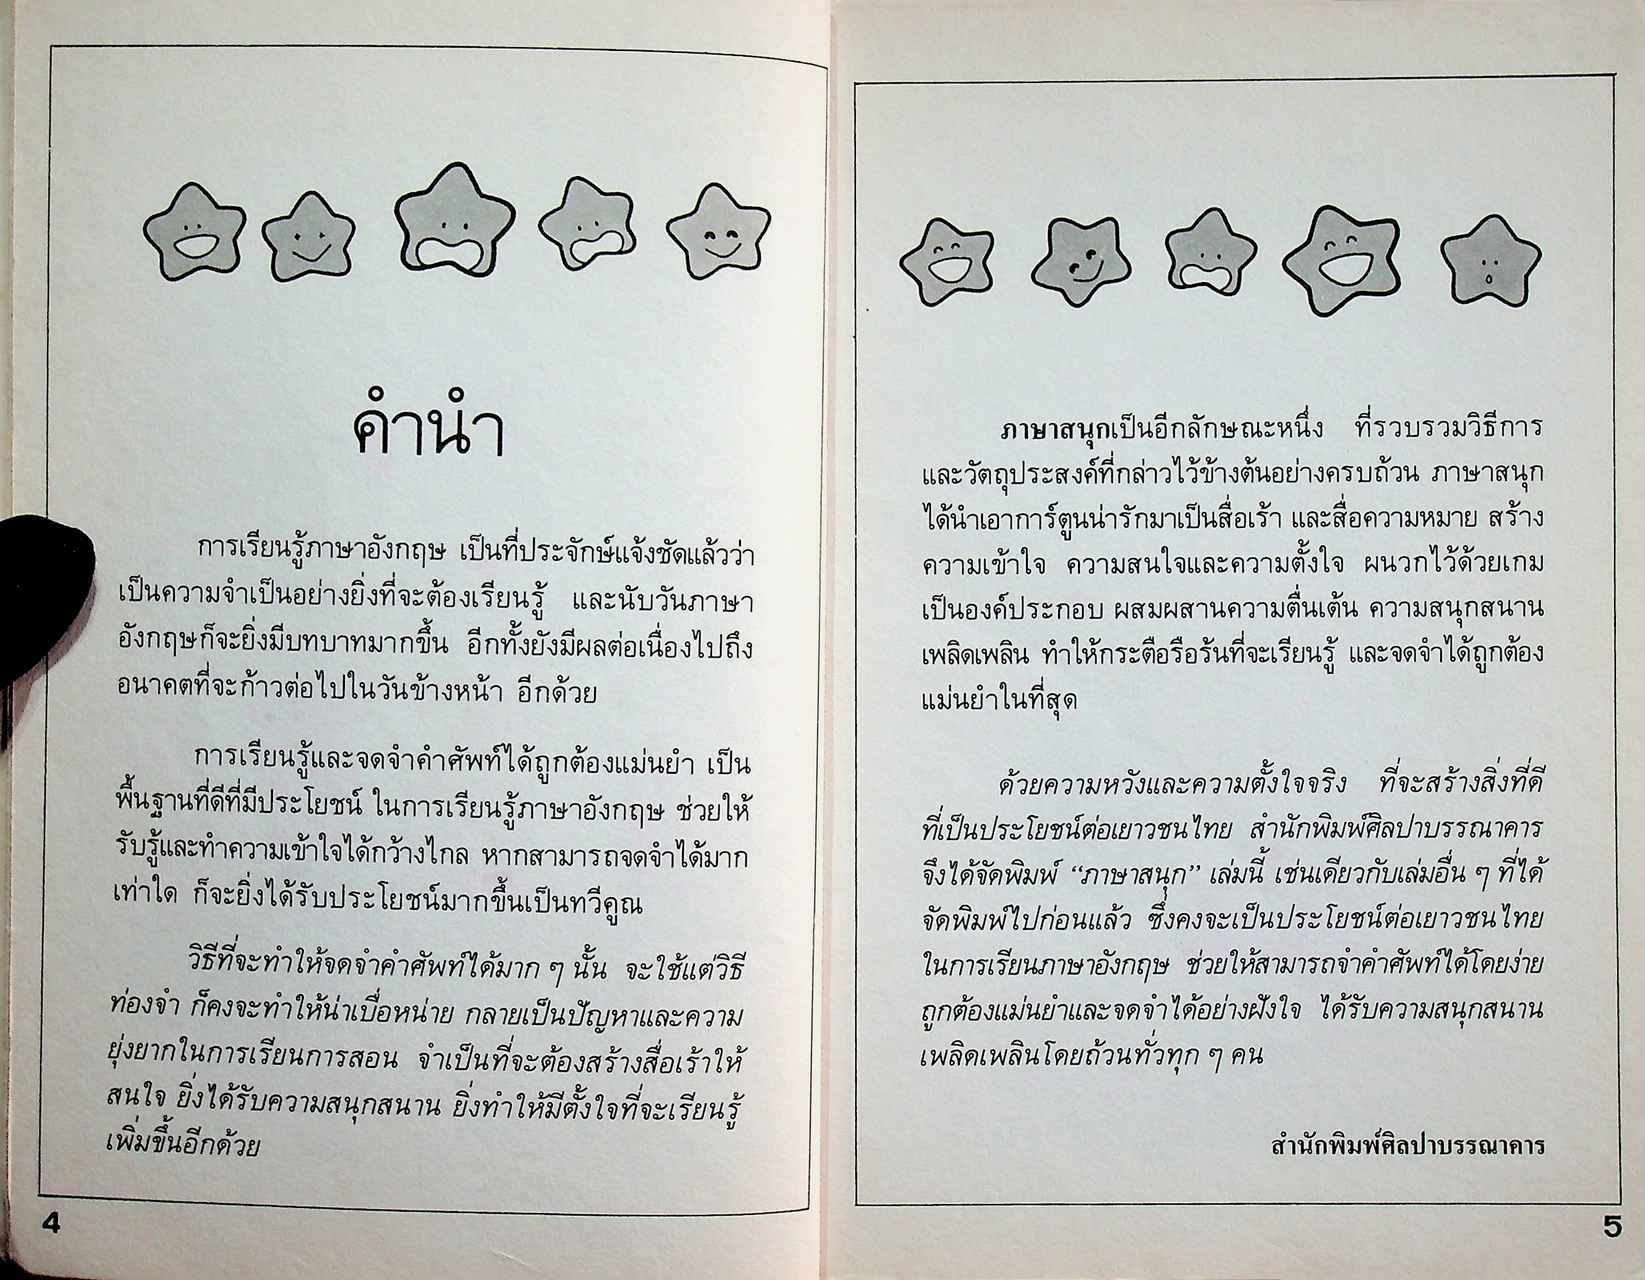 คำนำ
การเรียนรู้ภาษาอังกฤษ เป็นที่ประจักษ์แจ้งชัดแล้วว่า
เป็นความจำเป็นอย่างยิ่งที่จะต้องเรียนรู้ และนับวันภาษา
อังกฤษก็จะยิ่งมีบทบาทมากขึ้น อีกทั้งยังมีผลต่อเนื่องไปถึง
อนาคตที่จะก้าวต่อไปในวันข้างหน้า อีกด้วย
การเรียนรู้และจดจำคำศัพท์ได้ถูกต้องแม่นยำ เป็น
พื้นฐานที่ดีที่มีประโยชน์ ในการเรียนรู้ภาษาอังกฤษ ช่วยให้
รับรู้และทำความเข้าใจได้กว้างไกล หากสามารถจดจำได้มาก
เท่าใด ก็จะยิ่งได้รับประโยชน์มากขึ้นเป็นทวีคูณ
วิธีที่จะทำให้จดจำคำศัพท์ได้มาก ๆ นั้น จะใช้แต่วิธี
ท่องจำ ก็คงจะทำให้น่าเบื่อหน่าย กลายเป็นปัญหาและความ
ยุ่งยากในการเรียนการสอน จำเป็นที่จะต้องสร้างสื่อเร้าให้
สนใจ ยิ่งได้รับความสนุกสนาน ยิ่งทำให้มีตั้งใจที่จะเรียนรู้
เพิ่มขึ้นอีกด้วย
4
ภาษาสนุกเป็นอีกลักษณะหนึ่ง ที่รวบรวมวิธีการ
และวัตถุประสงค์ที่กล่าวไว้ข้างต้นอย่างครบถ้วน ภาษาสนุก
ได้นำเอาการ์ตูนน่ารักมาเป็นสื่อเร้า และสื่อความหมาย สร้าง
ความเข้าใจ ความสนใจและความตั้งใจ ผนวกไว้ด้วยเกม
เป็นองค์ประกอบ ผสมผสานความตื่นเต้น ความสนุกสนาน
เพลิดเพลิน ทำให้กระตือรือร้นที่จะเรียนรู้ และจดจำได้ถูกต้อง
แม่นยำในที่สุด
ด้วยความหวังและความตั้งใจจริง ที่จะสร้างสิ่งที่ดี
ที่เป็นประโยชน์ต่อเยาวชนไทย สำนักพิมพ์ศิลปาบรรณาคาร
จึงได้จัดพิมพ์ “ภาษาสนุก” เล่มนี้ เช่นเดียวกับเล่มอื่น ๆ ที่ได้
จัดพิมพ์ไปก่อนแล้ว ซึ่งคงจะเป็นประโยชน์ต่อเยาวชนไทย
ในการเรียนภาษาอังกฤษ ช่วยให้สามารถจำคำศัพท์ได้โดยง่าย
ถูกต้องแม่นยำและจดจำได้อย่างฝังใจ ได้รับความสนุกสนาน
เพลิดเพลินโดยถ้วนทั่วทุก ๆ คน
สำนักพิมพ์ศิลปาบรรณาคาร
5